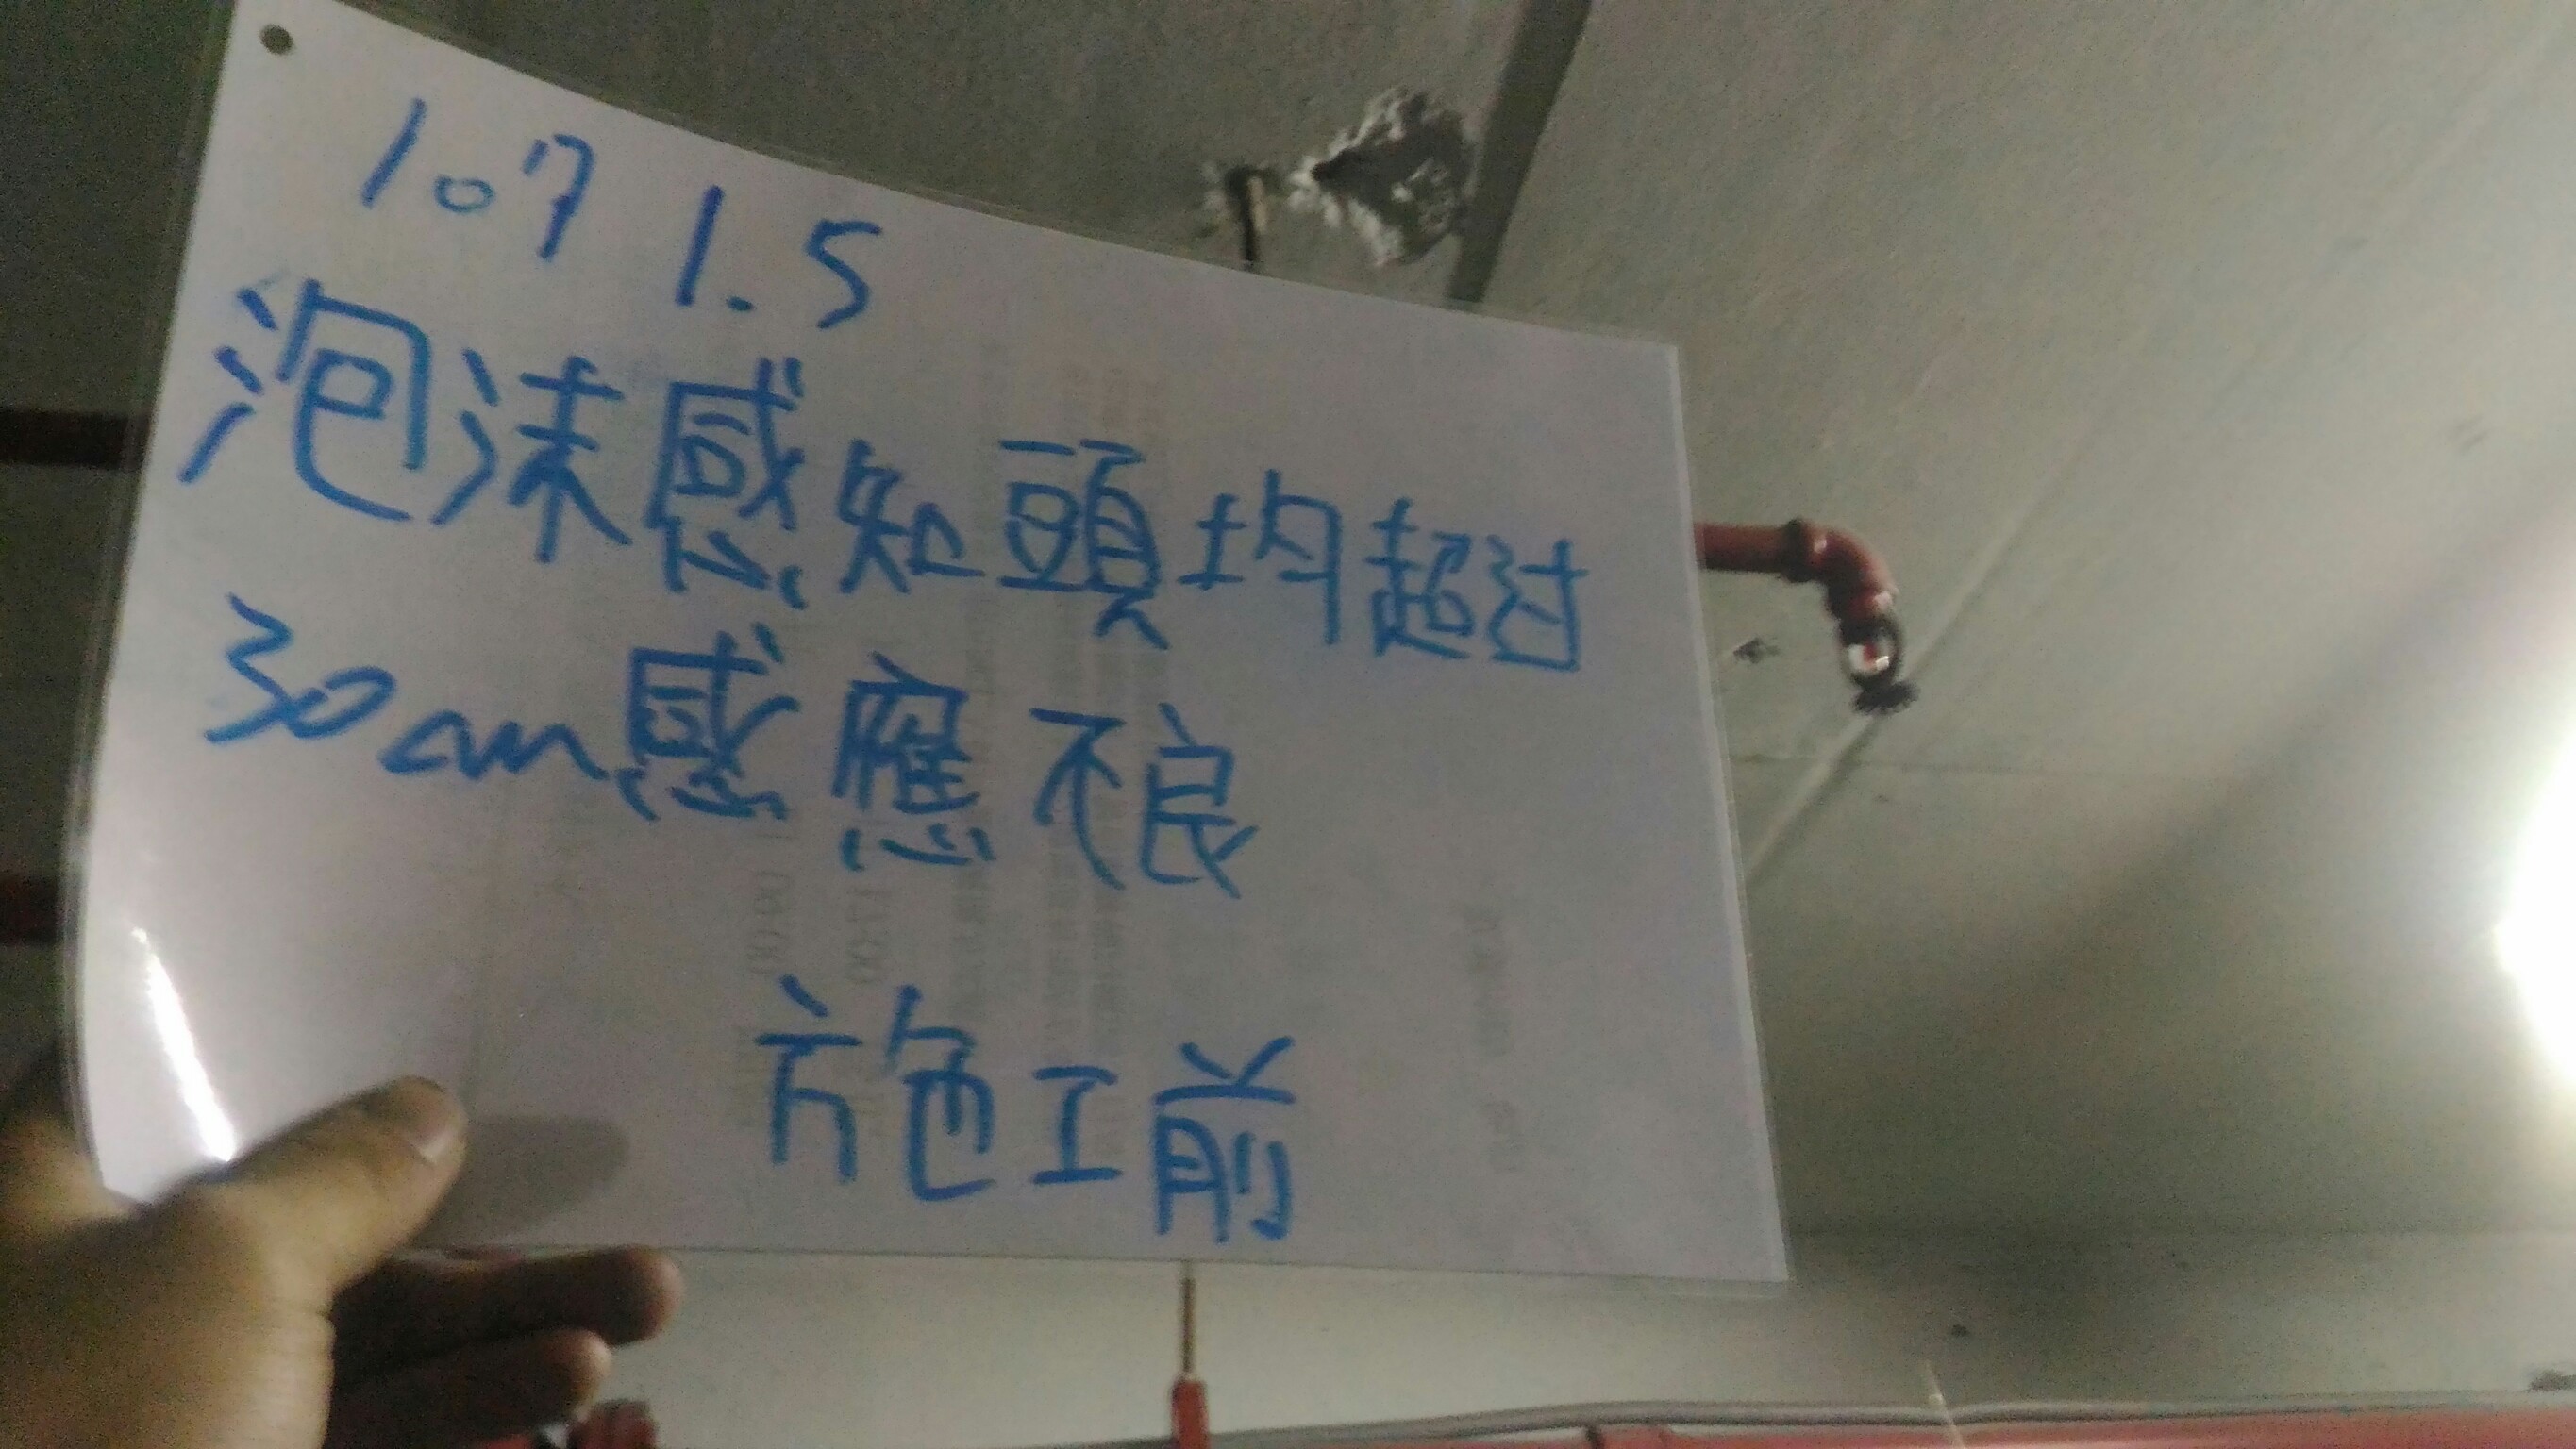 107 1.5
泡沫感知頭均超过
30cm感應不良
施工前